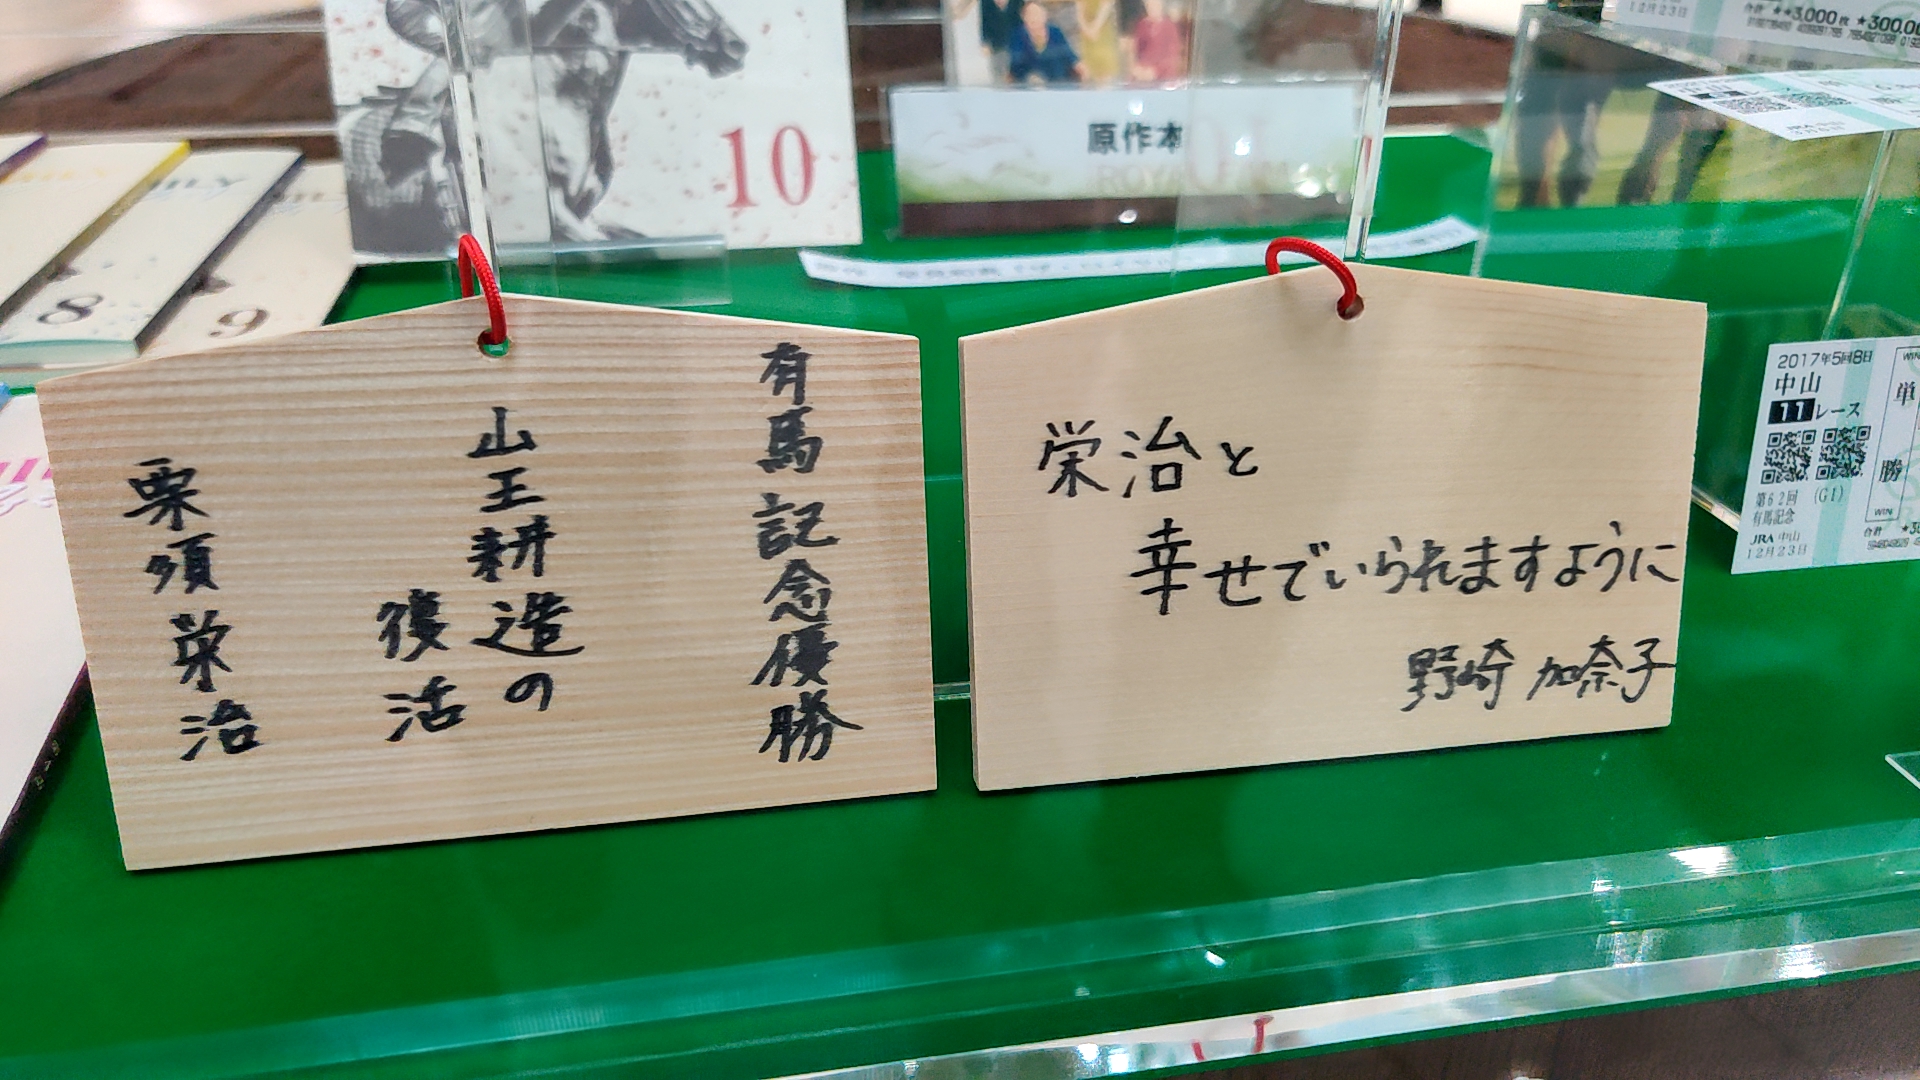 有馬記念優勝
山王耕造の
復活
栗須栄治
栄治と
幸せでいられますように
野崎 加奈子
8
9
10
原作本
12月23日
合計 ★★3,000枚 ★300,00
2017年5回8日
中山
11レース
第62回 (G1)
有馬記念
JRA 中山
12月23日
WIN
単
勝
WIN
合計